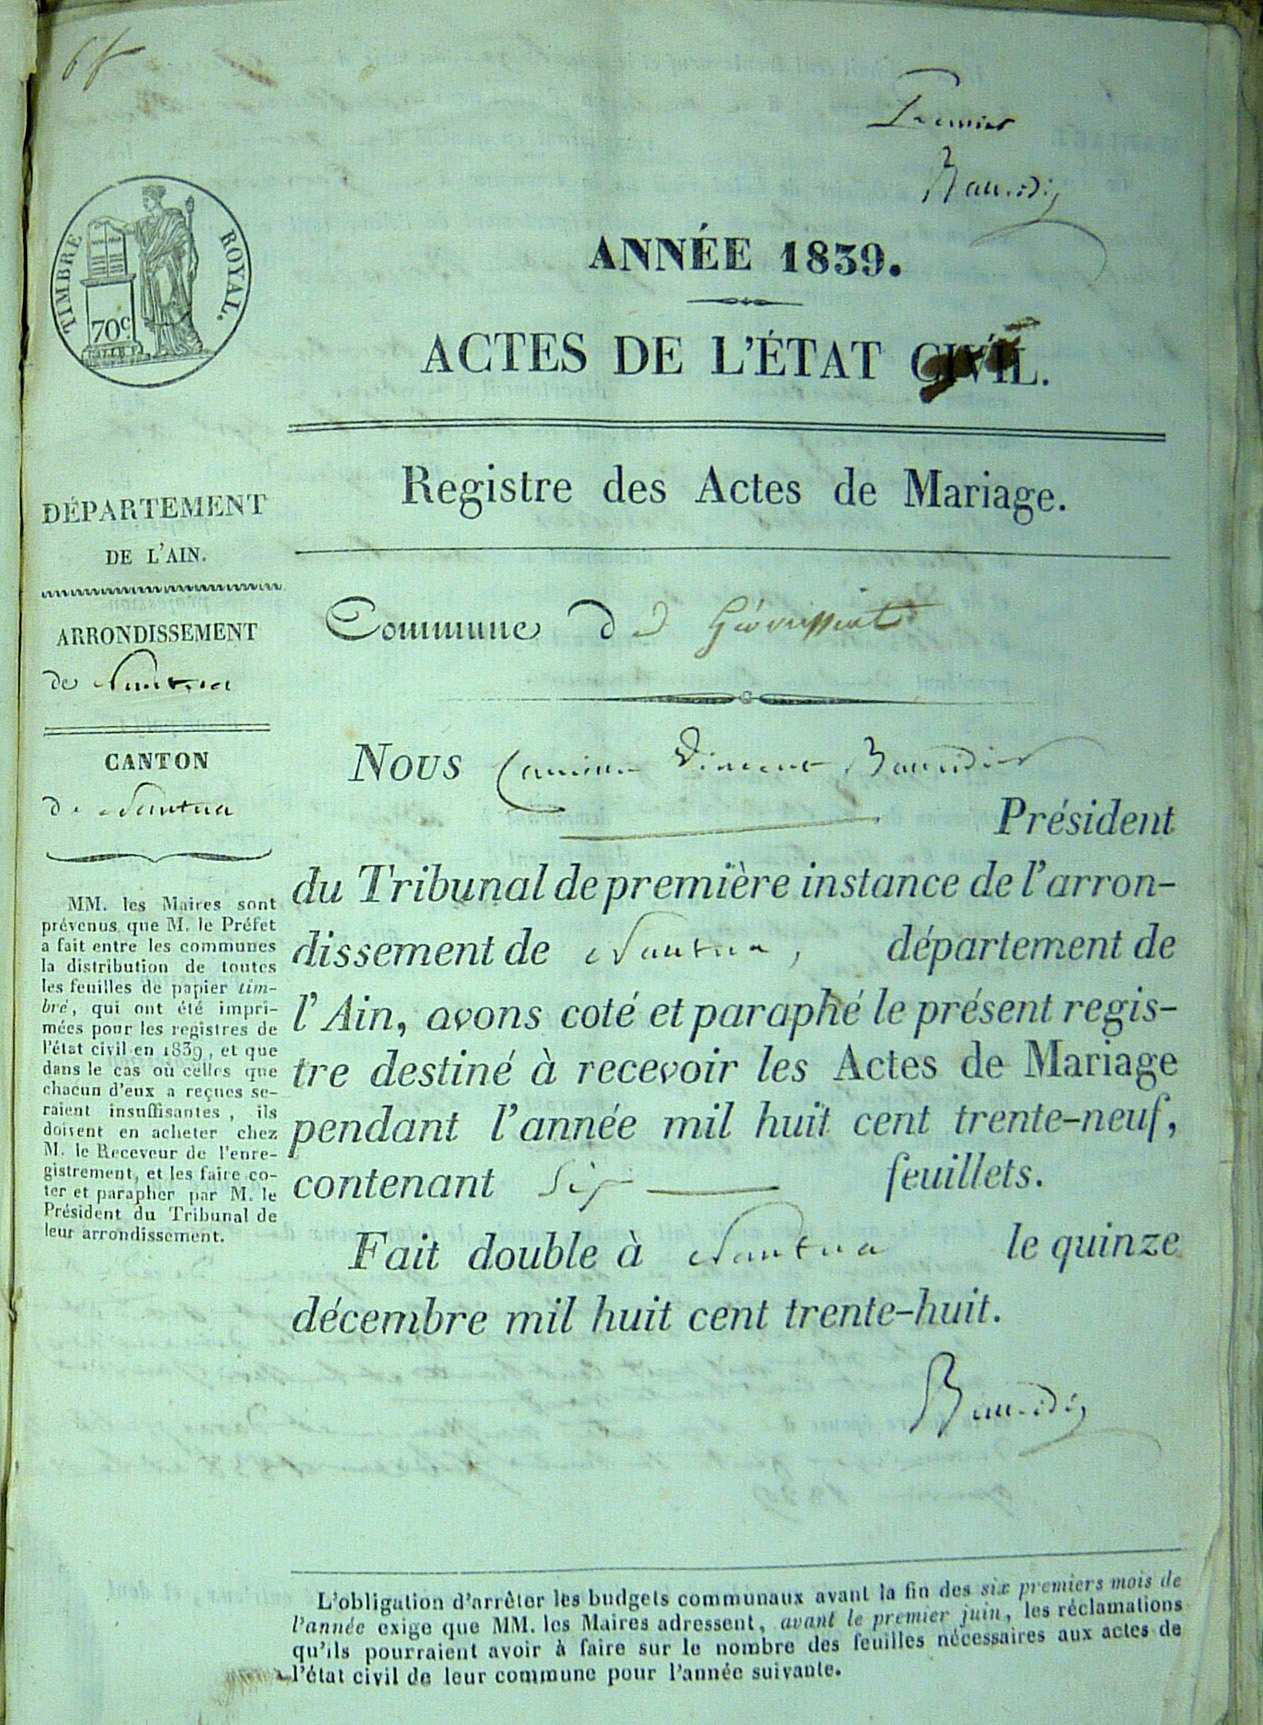 Premier
Baudin
ANNÉE 1839.
ACTES DE L'ÉTAT CIVIL.
Registre des Actes de Mariage.
TIMBRE ROYAL.
70c
DÉPARTEMENT
DE L'AIN.
ARRONDISSEMENT
de Nantua
CANTON
de Nantua
MM. les Maires sont
prévenus que M. le Préfet
a fait entre les communes
la distribution de toutes
les feuilles de papier tim-
bré, qui ont été impri-
mées pour les registres de
l'état civil en 1839, et que
dans le cas où celles que
chacun d'eux a reçues se-
raient insuffisantes, ils
doivent en acheter chez
M. le Receveur de l'enre-
gistrement, et les faire co-
ter et parapher par M. le
Président du Tribunal de
leur arrondissement.
Commune de Géovreissiat
Nous Vincent
Président
du Tribunal de première instance de l'arron-
dissement de Nantua, département de
l'Ain, avons coté et paraphé le présent regis-
tre destiné à recevoir les Actes de Mariage
pendant l'année mil huit cent trente-neuf,
contenant Six feuillets.
Fait double à Nantua le quinze
décembre mil huit cent trente-huit.
L'obligation d'arrêter les budgets communaux avant la fin des six premiers mois de
l'année exige que MM. les Maires adressent, avant le premier juin, les réclamations
qu'ils pourraient avoir à faire sur le nombre des feuilles nécessaires aux actes de
l'état civil de leur commune pour l'année suivante.